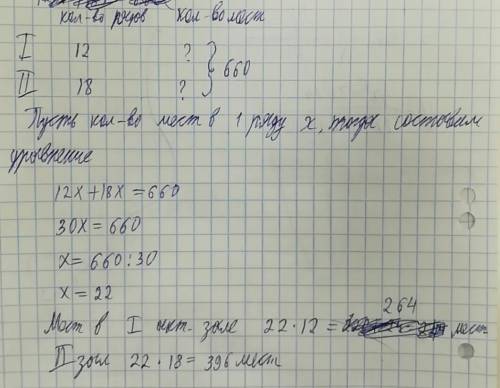 кол-во рядов кол-во мест
I 12 ? } 660
II 18 ?
Пусть кол-во мест в 1 ряду x, тогда составим
уравнение
12x+18x=660
30x=660
x=660:30
x=22
264
Мест в I акт. зале 22·12= мест
II зал 22·18=396 мест